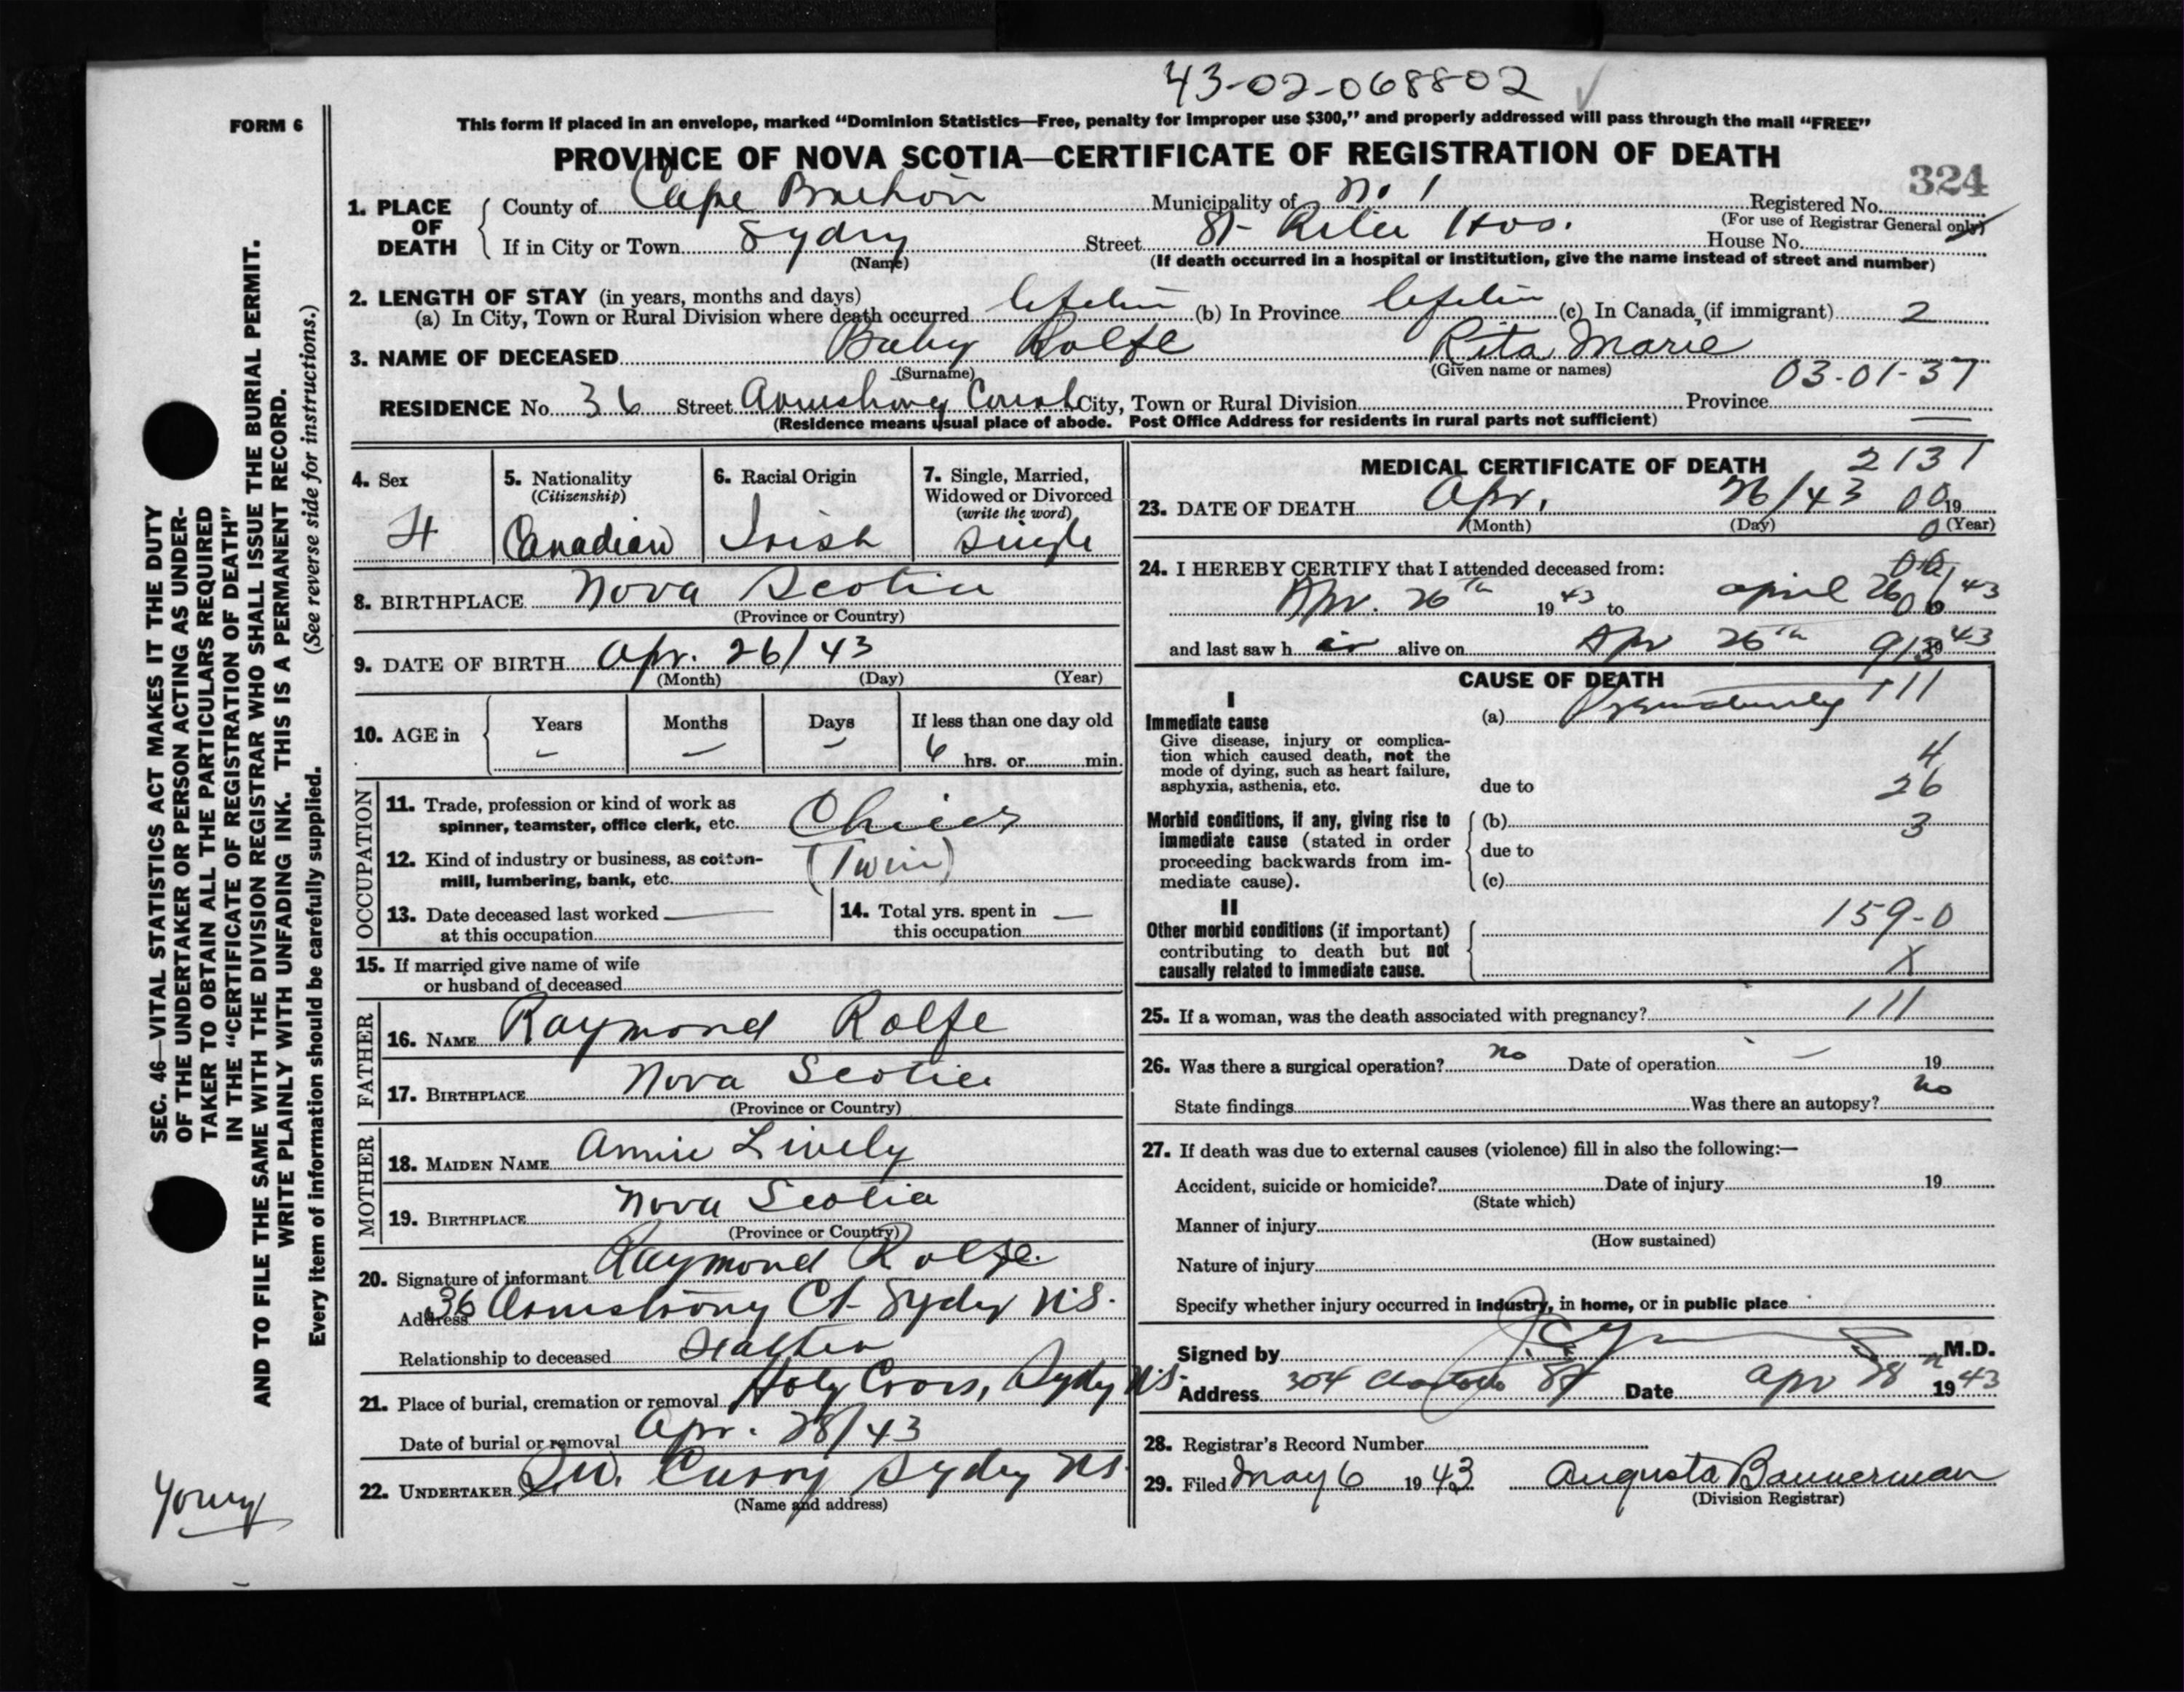 43-02-068802
FORM 6
This form if placed in an envelope, marked “Dominion Statistics—Free, penalty for improper use $300,” and properly addressed will pass through the mail “FREE”
PROVINCE OF NOVA SCOTIA—CERTIFICATE OF REGISTRATION OF DEATH
324
1. PLACE OF DEATH
County of Cape Breton Municipality of No. 1 Registered No.
(For use of Registrar General only)
If in City or Town Sydny Street St Rita Hos. House No.
(Name) (If death occurred in a hospital or institution, give the name instead of street and number)
2. LENGTH OF STAY (in years, months and days)
(a) In City, Town or Rural Division where death occurred (b) In Province (c) In Canada, (if immigrant) 2
3. NAME OF DECEASED Baby Rolfe Rita Marie
(Surname) (Given name or names)
03-01-37
RESIDENCE No. 36 Street Armstrong Court City, Town or Rural Division Province
(Residence means usual place of abode. Post Office Address for residents in rural parts not sufficient)
4. Sex
5. Nationality (Citizenship) Canadian
6. Racial Origin Irish
7. Single, Married, Widowed or Divorced (write the word) Single
8. BIRTHPLACE Nova Scotia
(Province or Country)
9. DATE OF BIRTH Apr. 26/43
(Month) (Day) (Year)
10. AGE in Years – Months – Days – If less than one day old 6 hrs. or min.
OCCUPATION
11. Trade, profession or kind of work as spinner, teamster, office clerk, etc.
12. Kind of industry or business, as cotton-mill, lumbering, bank, etc. (Twin)
13. Date deceased last worked at this occupation —
14. Total yrs. spent in this occupation —
15. If married give name of wife or husband of deceased
FATHER
16. NAME Raymond Rolfe
17. BIRTHPLACE Nova Scotia
(Province or Country)
MOTHER
18. MAIDEN NAME Annie Lively
19. BIRTHPLACE Nova Scotia
(Province or Country)
20. Signature of informant Raymond Rolfe.
Address 36 Armstrong Ct. Sydny N.S.
Relationship to deceased Father
21. Place of burial, cremation or removal Holy Cross, Sydny N.S.
Date of burial or removal Apr. 28/43
22. UNDERTAKER Curry Sydny N.S.
(Name and address)
MEDICAL CERTIFICATE OF DEATH
2131
23. DATE OF DEATH Apr. 26/43 00 19
(Month) (Day) (Year)
0
24. I HEREBY CERTIFY that I attended deceased from:
00
Apr. 26th 1943 to april 26/43
and last saw h er alive on Apr 26th 1943
CAUSE OF DEATH
I
Immediate cause
Give disease, injury or complication which caused death, not the mode of dying, such as heart failure, asphyxia, asthenia, etc.
(a) Prematurity 111
4
due to 26
Morbid conditions, if any, giving rise to immediate cause (stated in order proceeding backwards from immediate cause).
(b) 3
due to
(c)
II
Other morbid conditions (if important) contributing to death but not causally related to immediate cause.
159-0
X
25. If a woman, was the death associated with pregnancy? 111
26. Was there a surgical operation? no Date of operation – 19
State findings Was there an autopsy? no
27. If death was due to external causes (violence) fill in also the following:—
Accident, suicide or homicide? Date of injury 19
(State which)
Manner of injury
(How sustained)
Nature of injury
Specify whether injury occurred in industry, in home, or in public place
Signed by M.D.
Address 304 St Date Apr 28th 1943
28. Registrar's Record Number
29. Filed May 6 1943 Augusta Bannerman
(Division Registrar)
SEC. 46—VITAL STATISTICS ACT MAKES IT THE DUTY
OF THE UNDERTAKER OR PERSON ACTING AS UNDER-
TAKER TO OBTAIN ALL THE PARTICULARS REQUIRED
IN THE “CERTIFICATE OF REGISTRATION OF DEATH”
AND TO FILE THE SAME WITH THE DIVISION REGISTRAR WHO SHALL ISSUE THE BURIAL PERMIT.
WRITE PLAINLY WITH UNFADING INK. THIS IS A PERMANENT RECORD.
Every item of information should be carefully supplied. (See reverse side for instructions.)
Young